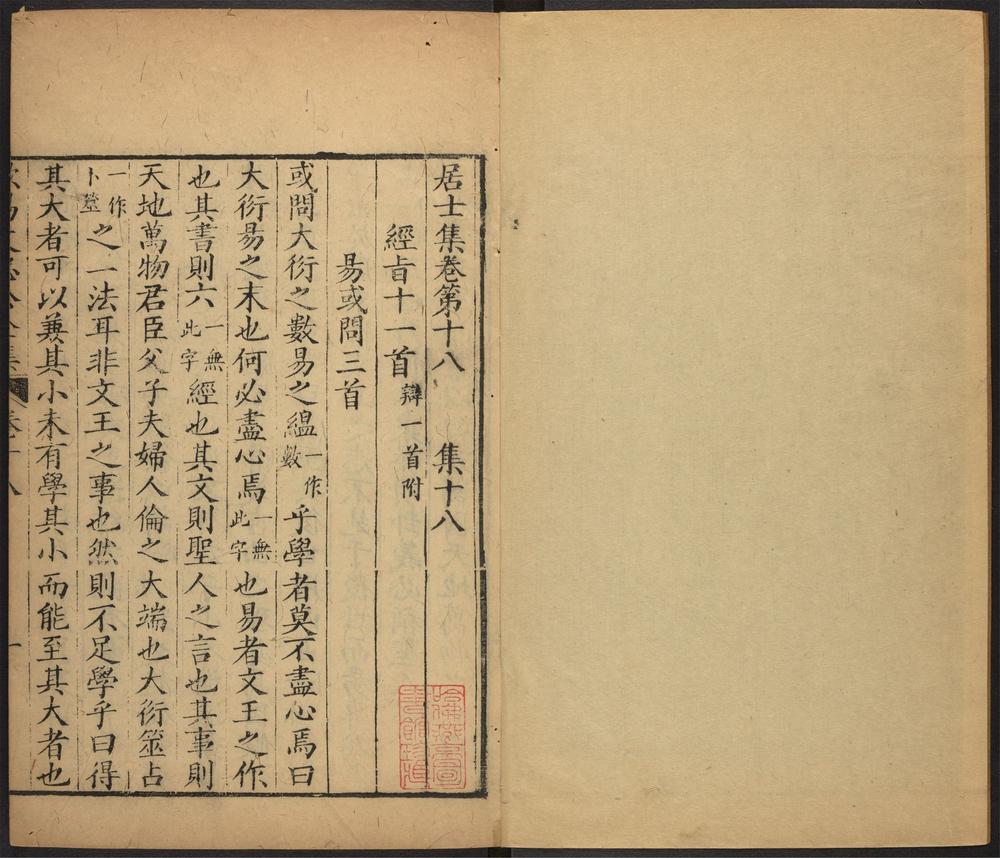 居士集卷第十八 集十八
經旨十一首 辯一首附
易或問三首
或問大衍之數易之緼一作數乎學者莫不盡心焉曰
大衍易之末也何必盡心焉一無此字也易者文王之作
也其書則六一無此字經也其文則聖人之言也其事則
天地萬物君臣父子夫婦人倫之大端也大衍筮占
一作卜筮之一法耳非文王之事也然則不足學乎曰得
其大者可以兼其小未有學其小而能至其大者也
哈佛燕京圖書館珍藏